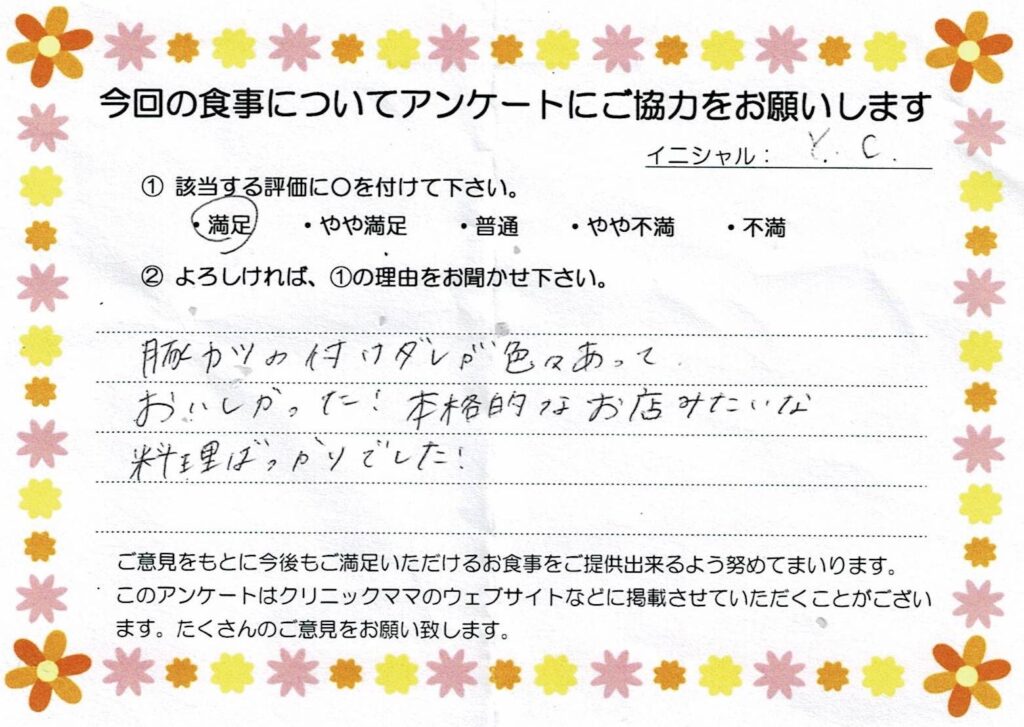 今回の食事についてアンケートにご協力をお願いします
イニシャル： Y. C.
① 該当する評価に〇を付けて下さい。
・満足 ・やや満足 ・普通 ・やや不満 ・不満
② よろしければ、①の理由をお聞かせ下さい。
豚カツの付けダレが色々あって
おいしかった！本格的なお店みたいな
料理ばっかりでした！
ご意見をもとに今後もご満足いただけるお食事をご提供出来るよう努めてまいります。
このアンケートはクリニックママのウェブサイトなどに掲載させていただくことがござい
ます。たくさんのご意見をお願い致します。